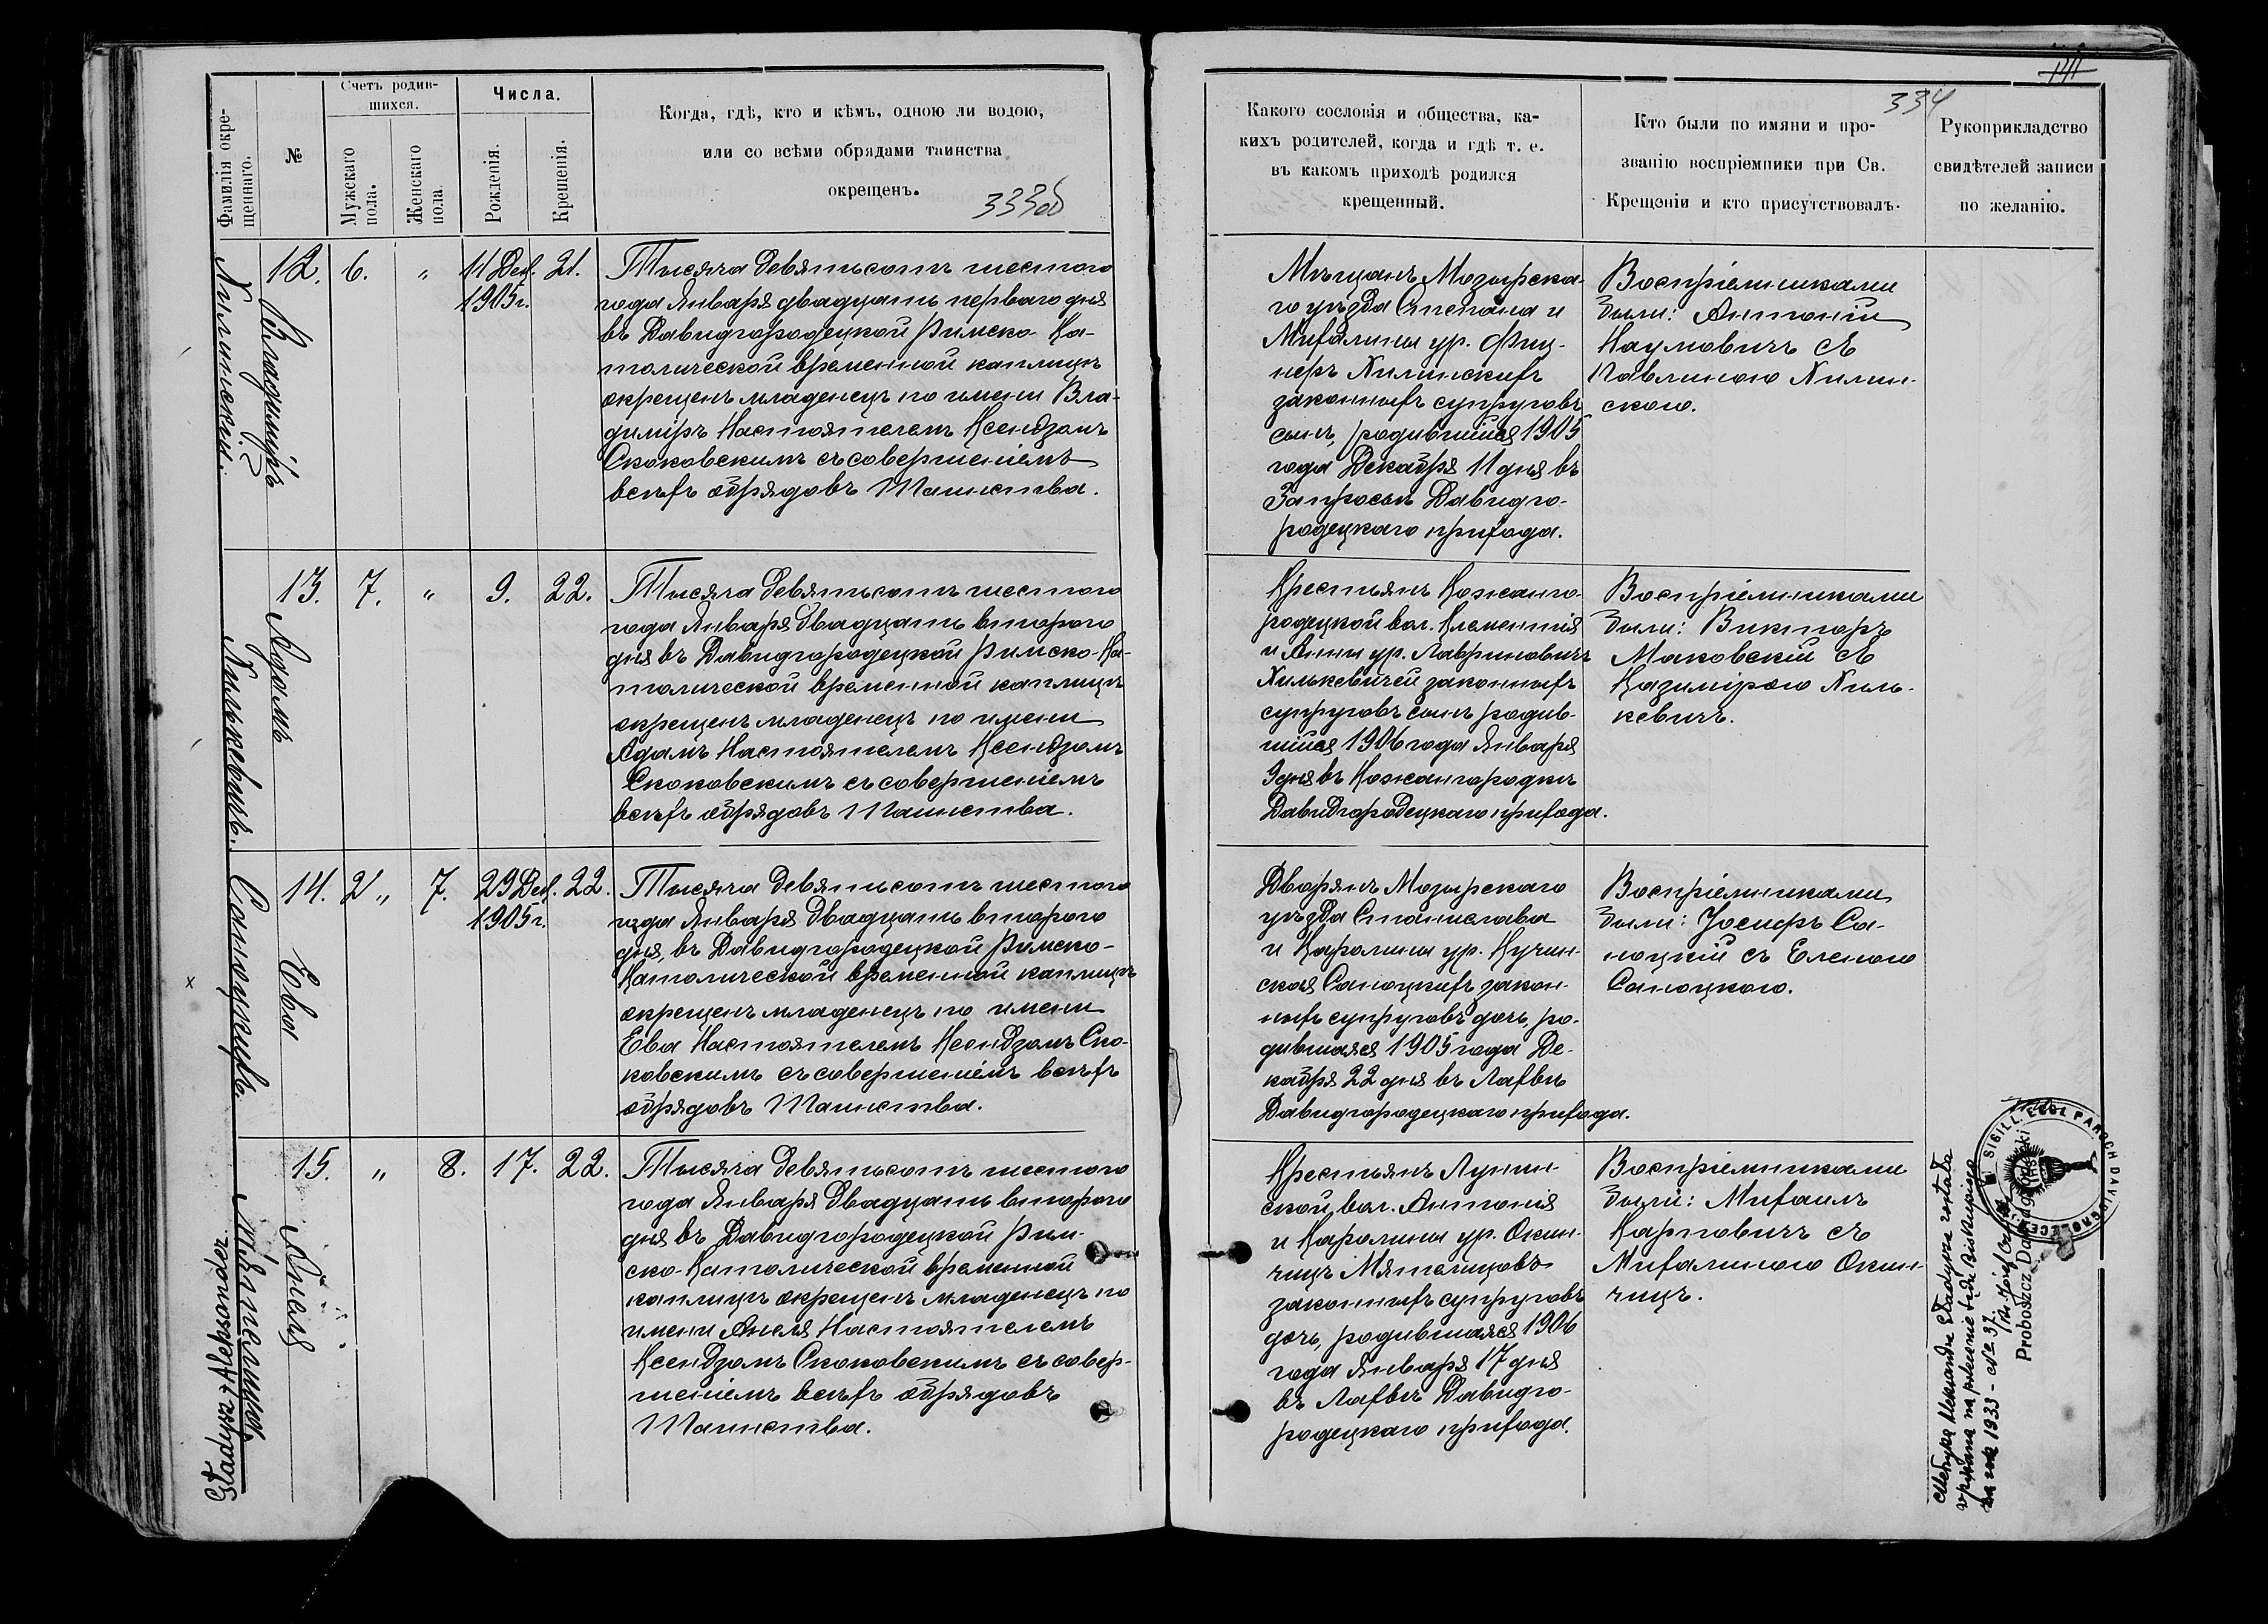 Фамилія окре-
щеннаго.
№
Счетъ родив-
шихся.
Мужскаго
пола.
Женскаго
пола
Числа.
Рожденія.
Крещенія.
Когда, гдѣ, кто и кѣмъ, одною ли водою,
или со всѣми обрядами таинства
окрещенъ.
333об
Хилинскій.
12.
Владиміръ
6.
"
11 Дек.
1905 г.
21.
Тысяча девятьсотъ шестого
года Января двадцать перваго дня
въ Давидгородецкой Римско-Ка-
толической временной каплицѣ
окрещенъ младенецъ по имени Вла-
диміръ Настоятелемъ Ксендзомъ
Скоковскимъ съ совершеніемъ
всѣхъ обрядовъ Таинства.
Хилькевичъ.
13.
Адамъ
7.
"
9.
22.
Тысяча девятьсотъ шестого
года Января двадцать второго
дня въ Давидгородецкой Римско-Ка-
толической временной каплицѣ
окрещенъ младенецъ по имени
Адамъ Настоятелемъ Ксендзомъ
Скоковскимъ съ совершеніемъ
всѣхъ обрядовъ Таинства.
Саноцкихъ.
14.
Ева
"
7.
29 Дек.
1905 г.
22.
Тысяча девятьсотъ шестого
года Января двадцать второго
дня, въ Давидгородецкой Римско-
Католической временной каплицѣ
окрещенъ младенецъ по имени
Ева Настоятелемъ Ксендзомъ Ско-
ковскимъ съ совершеніемъ всѣхъ
обрядовъ Таинства.
Gładysz Aleksander
15.
Анеля
"
8.
17.
22.
Тысяча девятьсотъ шестого
года Января двадцать второго
дня въ Давидгородецкой Рим-
ско-Католической временной
каплицѣ окрещенъ младенецъ по
имени Анеля Настоятелемъ
Ксендзомъ Скоковскимъ съ совер-
шеніемъ всѣхъ обрядовъ
Таинства.
141
334
Какого сословія и общества, ка-
кихъ родителей, когда и гдѣ т. е.
въ какомъ приходѣ родился
крещенный.
Кто были по имяни и про-
званію воспріемники при Св.
Крещеніи и кто присутствовалъ.
Рукоприкладство
свидѣтелей записи
по желанію.
Мѣщанъ Мозырска-
го уѣзда Степана и
Михалины ур. Фиц-
неръ Хилинскихъ
законныхъ супруговъ
сынъ, родившійся 1905
года Декабря 11 дня въ
Давидго-
родецкаго прихода.
Воспріемниками
были: Антоній
Наумовичъ съ
Павлиною Хилин-
скою.
Крестьянъ Кожанго-
родецкой вол. Клементія
и Анны ур. Лавриновичъ
Хилькевичей законныхъ
супруговъ сынъ родив-
шійся 1906 года Января
9 дня въ Кожангородкѣ
Давидгородецкаго прихода.
Воспріемниками
были: Викторъ
Маковскій съ
Казимірою Хиль-
кевичъ.
Дворянъ Мозырскаго
уѣзда Станислава
и Каролины ур. Кучин-
ская Саноцкихъ закон-
ныхъ супруговъ дочь, ро-
дившаяся 1905 года Де-
кабря 22 дня въ Лахвѣ
Давидгородецкаго прихода.
Воспріемниками
были: Іосифъ Са-
ноцкій съ Еленою
Саноцкою.
Крестьянъ Лунин-
ской вол. Антонія
и Каролины ур. Окин-
чицъ
законныхъ супруговъ
дочь, родившаяся 1906
года Января 17 дня
въ Лахвѣ Давидго-
родецкаго прихода.
Воспріемниками
были: Михаилъ
Карповичъ съ
Михалиною Окин-
чицъ.
Metryka Aleksandra Gładysza została
wpisana na polecenie
za rok 1933 - № 37.
Proboszcz Dawidgródecki
SIGILL. ECCL. PAROCH DAVIDGRODECEN